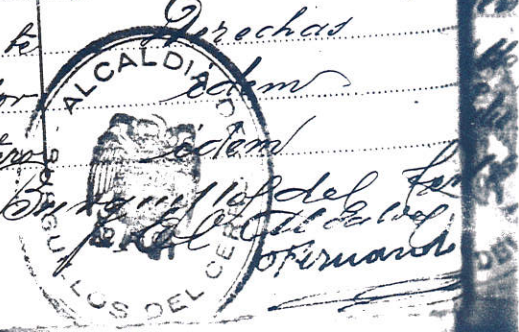 te Derechas
or idem
idem
Burguillos del
El Alcalde
Fernando
ALCALDIA DE
BURGUILLOS DEL CERRO